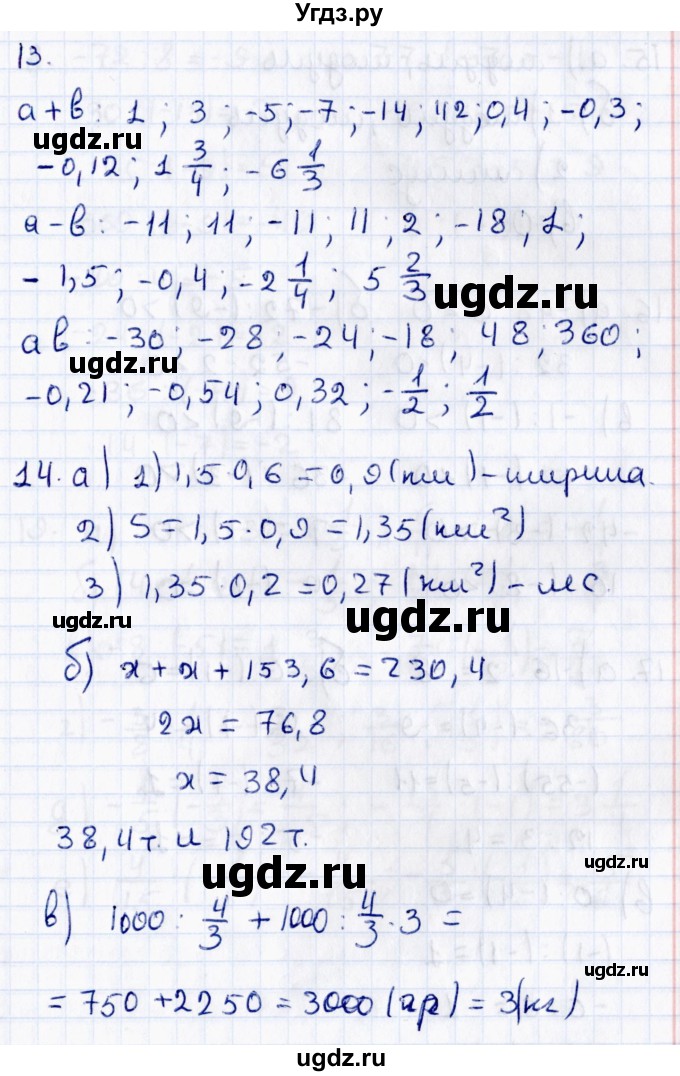 Угдз.ру
13.
a+в : 1 ; 3 ; -5 ; -7 ; -14 ; 42 ; 0,4 ; -0,3 ;
ugdz.ru
ugdz.ru
-0,12 ; 1 3/4 ; -6 1/3
a-в : -11 ; 11 ; -11 ; 11 ; 2 ; -18 ; 1 ;
-1,5 ; -0,4 ; -2 1/4 ; 5 2/3
ugdz.ru
aв : -30 ; -28 ; -24 ; -18 ; 48 ; 360 ;
ugdz.ru
-0,21 ; -0,54 ; 0,32 ; -1/2 ; 1/2
14. а) 1) 1,5·0,6 = 0,9 (км) - ширина.
2) S = 1,5·0,9 = 1,35 (км²)
ugdz.ru
3) 1,35·0,2 = 0,27 (км²) - лес.
ugdz.ru
б) x + x + 153,6 = 230,4
2x = 76,8
x = 38,4
38,4 т. и 192 т.
ugdz.ru
ugdz.ru
в) 1000 : 4/3 + 1000 : 4/3 · 3 =
ugdz.ru
= 750 + 2250 = 3000 (гр) = 3 (кг)
ugdz.ru